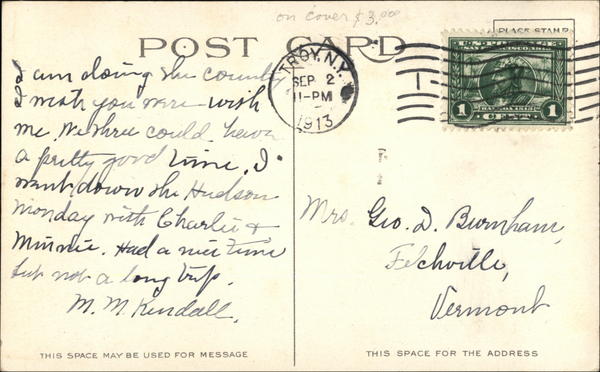 on cover $3.00
PLACE STAMP
POST CARD
TROY, N.Y.
SEP 2
11-PM
1913
1 1
I am doing the county
I wish you were with
me. We three could have
a pretty good time. I
went down the Hudson
Monday with Charlie &
Minnie. Had a nice time
but not a long trip.
M. M. Kendall.
Mrs. Geo. D. Burnham,
Felchville,
Vermont
THIS SPACE MAY BE USED FOR MESSAGE
THIS SPACE FOR THE ADDRESS